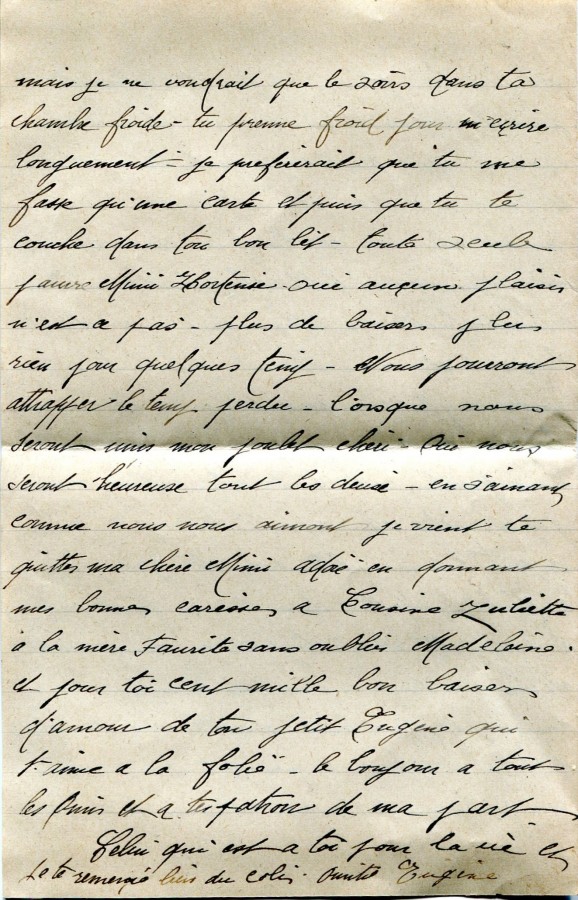 mais je ne voudrait que le soirs dans ta
chambre froide - tu prenne froid pour m'ecrire
longuement - je prefererait que tu me
fasse qu'une carte et puis que tu te
couche dans ton bon lit - toute seule
pauvre Mimi Hortense - oui aucun plaisir
n'est ce pas - plus de baisers plus
rien pour quelques temp - Nous pourront
attrapper le temp perdu - lorsque nous
seront unis mon poulet chéri - Oui nous
seront heureuse tout les deux - en s'aimant
comme nous nous aimont je vient te
quitter ma chère Mimi adoré en donnant
mes bonnes caresses a Cousine Juliette
à la mère Faurite sans oublier Madeleine.
et pour toi cent mille bon baisers
d'amour de ton petit Eugène qui
t'aime a la folie - le bonjour a tout
les amis et a tes patron de ma part
Celui qui est a toi pour la vie et
je te remercie bien du colis. Eugène